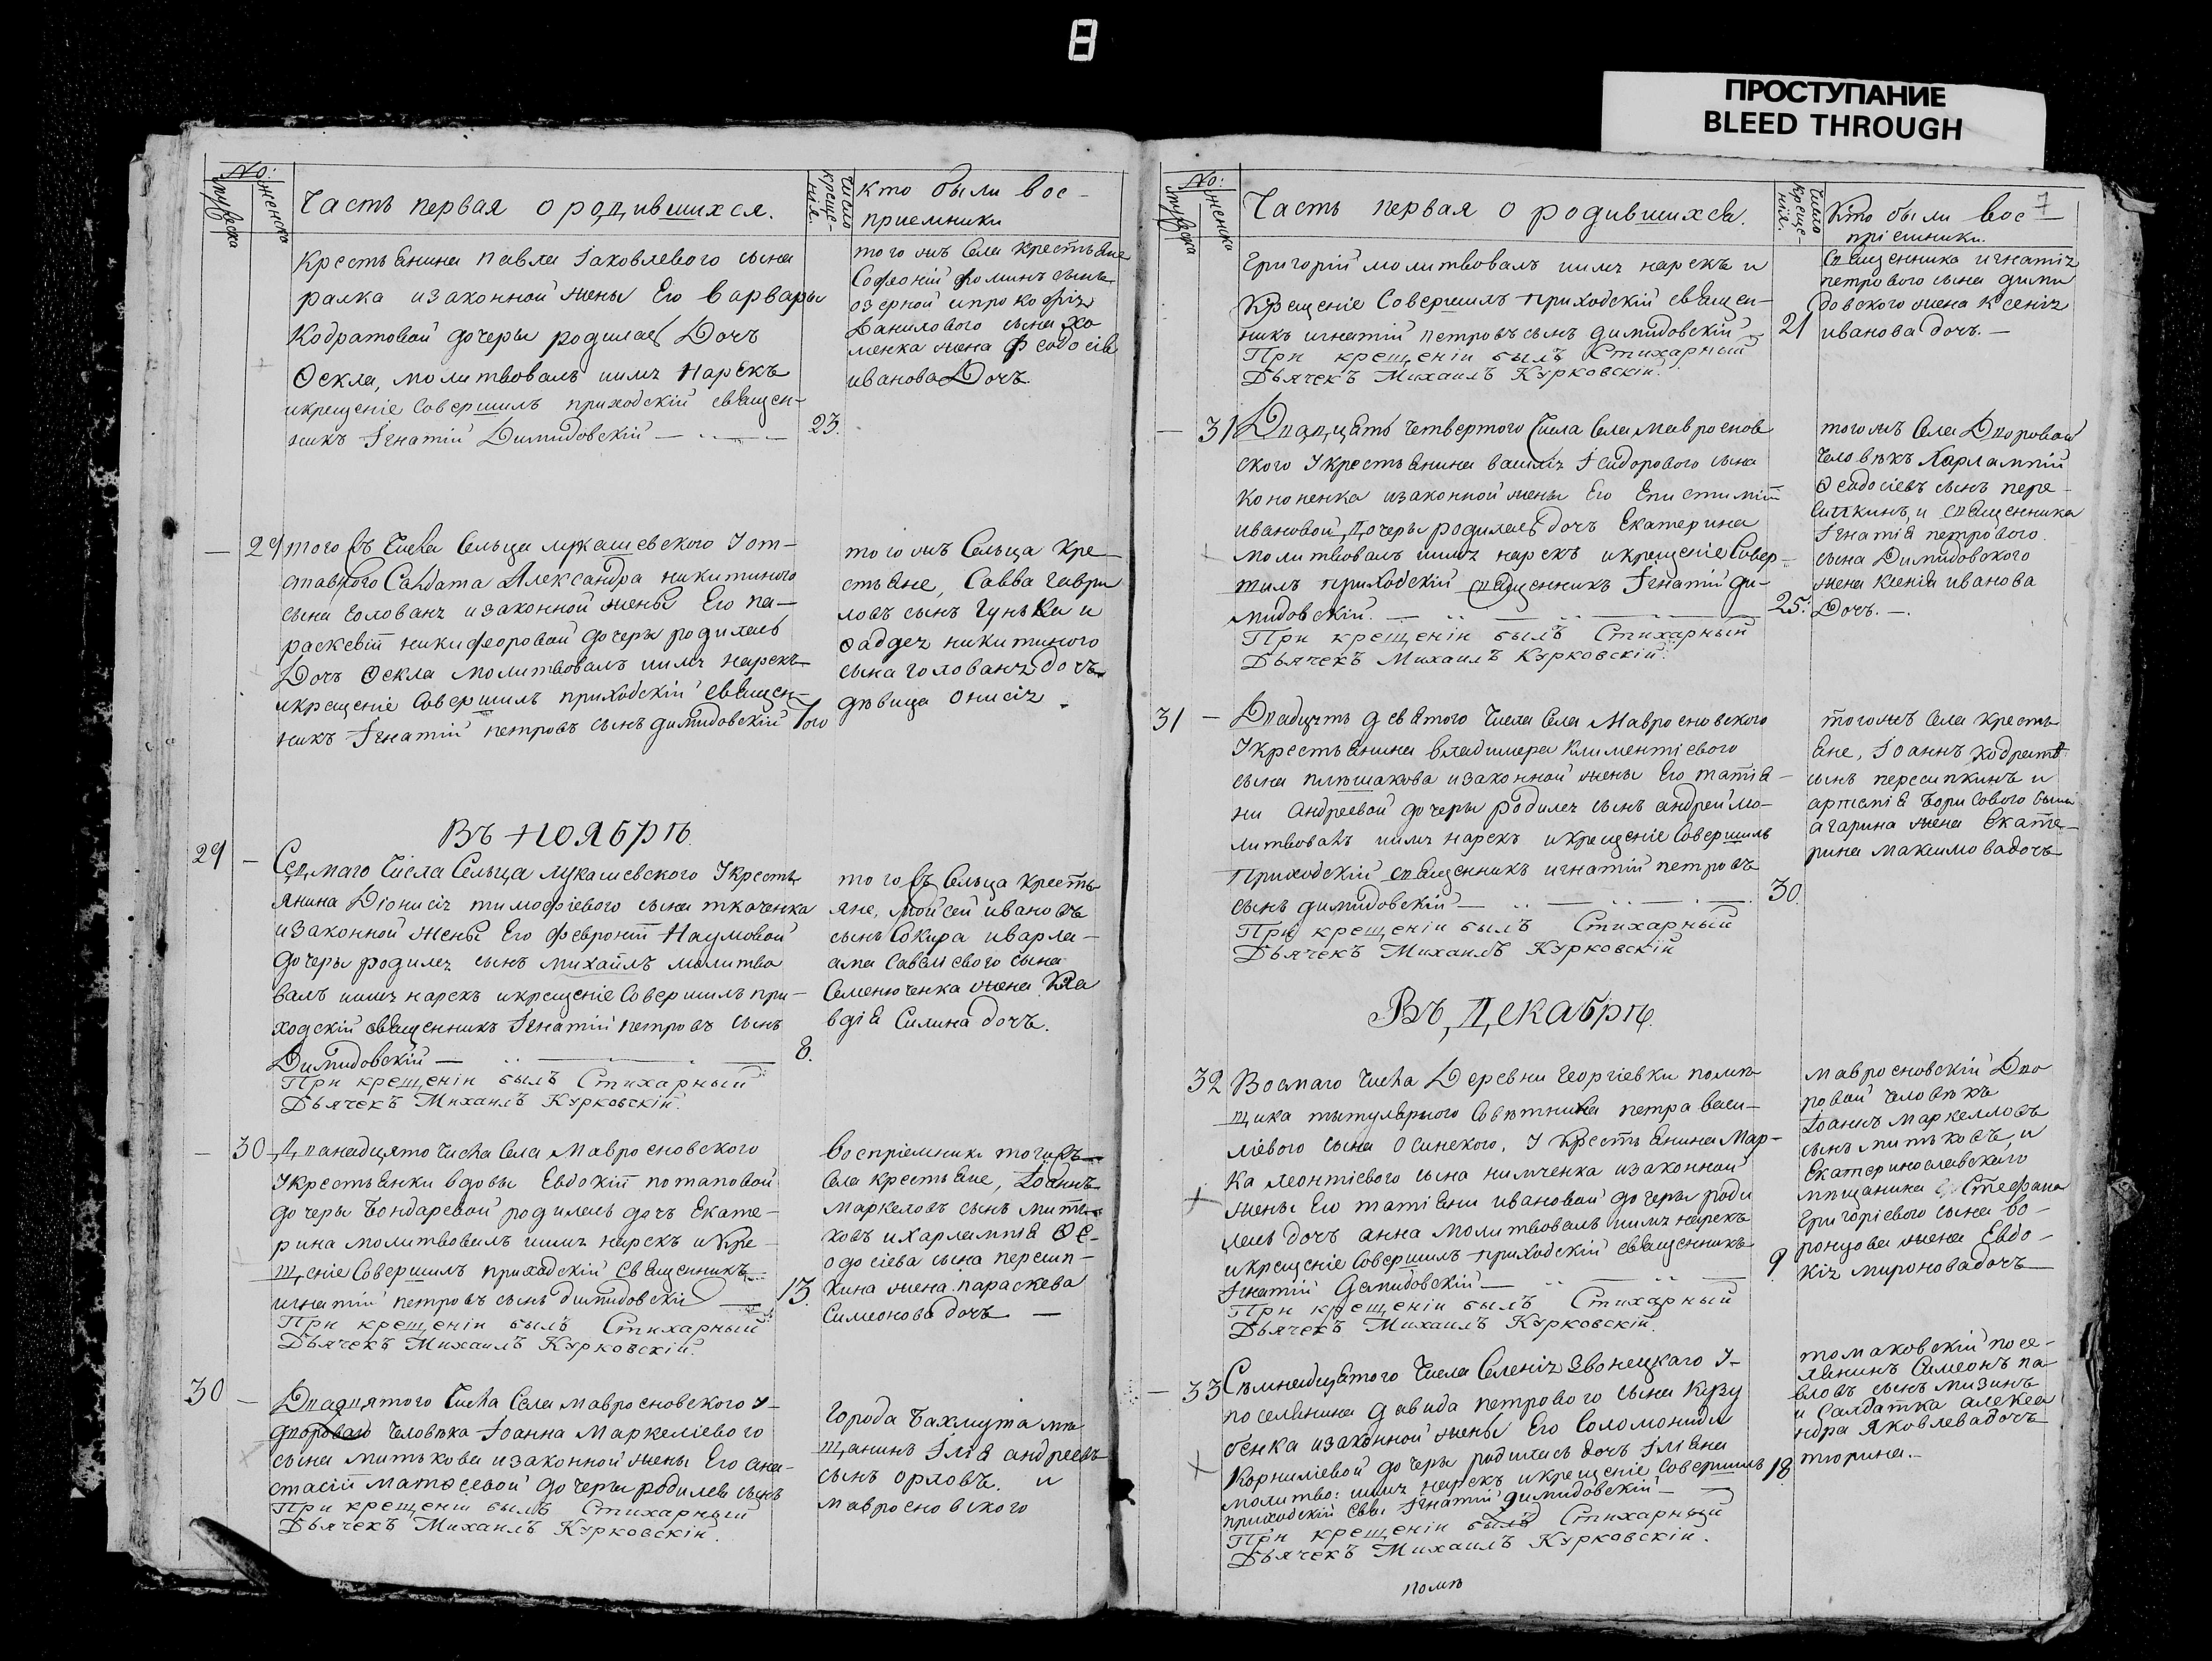 8
ПРОСТУПАНИЕ
BLEED THROUGH
No:
мужеска
женска
Часть первая о родившихся.
Число
креще-
нія.
кто были вос-
приемники
крестьянина павла Іаковлевого сына
ралка изаконной жены Его варвары
Кодратовой дочеры родилась Дочъ
Ѳекла, молитвовалъ имя нарекъ
икрещеніе Совершилъ приходскій священ-
никъ Ігнатій Димидовскій
23.
того жъ Села крестьяне
Софроній фоминъ сынъ
озерной ипрокофія
Данилового сына хо
менка жена Феодосія
иванова Дочъ.
29
того жъ Числа Сельца лукашевского У от-
ставного Салдата Александра никитиного
сына голована изаконной жены Его па-
раскевіи никифоровой дочеры родилась
Дочъ Ѳекла молитвовалъ имя нарекъ
икрещеніе Совершилъ приходскій священ-
никъ Ігнатій петровъ сынъ димидовскій
того жъ Сельца кре-
стьяне, Савва гаври
ловъ сынъ гунька и
фаддея никитиного
сына голована дочъ
дѣвица онисія
Въ ноябрѣ.
29
Седмаго Числа Сельца лукашевского Укресть
янина Діонисія тимофіевого сына ткаченка
изаконной жены Его февроніи Наумовой
дочеры родился сынъ михаилъ молитво
валъ имя нарекъ икрещеніе Совершилъ при-
ходскій священникъ Ігнатій петровъ сынъ
Димидовскій
8.
При крещеніи былъ Стихарный
Дьячекъ Михаилъ Курковскій.
того жъ Сельца кресть
яне, Мойсей ивановъ
сынъ Сокира иварла-
ама Савелѣвого сына
Семенюченка жена Кла
вдія Силина дочъ.
30
Дванадцято Числа Села Мавроеновского
Укрестьянки вдовы Евдокіи потаповой
дочеры Бондаревой родилась дочъ Екате-
рина молитвовалъ имя нарекъ икре-
щеніе Совершилъ приходскій священникъ
игнатій петровъ сынъ димидовскій
13.
При крещеніи былъ Стихарный
Дьячекъ Михаилъ Курковскій.
воспріемники тогожъ
Села крестьяне, Іоаннъ
Маркеловъ сынъ мить
ковъ ихарлампія Ѳе-
одосіева сына пересип-
кина жена параскева
Симеонова дочъ
30
Двадцятого Числа Села мавроеновского У
дворового Человѣка Іоанна Маркеліевого
сына митькова изаконной жены Его ана-
стасіи матѳеевой дочеры родился сынъ
При крещеніи былъ Стихарный
Дьячекъ Михаилъ Курковскій.
Города Бахмута мѣ
щанинъ Ілія андреевъ
сынъ орловъ. и
мавроеновского
No:
мужеска
женска
Часть первая о родившихся.
Число
креще-
нія.
Кто были вос-
пріемники.
7
Григорій молитвовалъ имя нарекъ и
Крещеніе Совершилъ приходскій священ-
никъ игнатій петровъ сынъ димидовскій
21
При крещеніи былъ Стихарный
Дьячекъ Михаилъ Курковскій.
Священника игнатія
петрового сына дими
довского жена Ксенія
иванова дочъ.
31
Двадцать четвертого Числа Села Мавроенов
ского Укрестьянина василія Ісидорового сына
Кононенка изаконной жены Его Епистиміи
ивановой Дочеры родилась дочъ Екатерина
молитвовалъ имя нарекъ икрещеніе Совер-
шилъ приходскій священникъ Ігнатій ди-
мидовскій.
25.
При крещеніи былъ Стихарный
Дьячекъ Михаилъ Курковскій.
тогожъ Села Дворовой
Человѣкъ Харлампій
Ѳеодосіевъ сынъ пере-
сипкинъ, и священника
Ігнатія петрового
сына Димидовского
жена Ксенія иванова
Дочъ.
31
Двадцять девятого Числа Села Мавроеновского
Укрестьянина владимера климентіевого
сына плѣшакова изаконной жены Его татія-
ни андреевой дочеры родился сынъ андрей мо-
литвовалъ имя нарекъ икрещеніе Совершилъ
Приходскій священникъ игнатій петровъ
сынъ димидовскій
30.
При крещеніи былъ Стихарный
Дьячекъ Михаилъ Курковскій
тогожъ Села кресть
яне, Іоаннъ кодратов
сынъ пересипкинъ и
артемія Борисового сына
агарина жена Екате-
рина максимова дочъ
Въ Декабрѣ.
32
Восмаго Числа Деревни Георгіевки помѣ
щика тытулярного Совѣтника петра васи-
ліевого сына Осинского, У крестьянина Мар-
ка леонтіевого сына нимченка изаконной
жены Его татіяни ивановой дочеры роди
лась дочъ анна молитвовалъ имя нарекъ
икрещеніе Совершилъ приходскій священникъ
Ігнатій Демидовскій
9
При крещеніи былъ Стихарный
Дьячекъ Михаилъ Курковскій.
мавроеновскій Дво
ровой Человѣкъ
Іоаннъ Маркелловъ
сынъ митьковъ, и
Екатеринославского
мѣщанина Стефана
Григоріевого сына во-
ронцова жена Евдо-
кія миронова дочъ
33
Сѣмнадцятого Числа Селенія Звонецкаго У-
поселянина давида петрового сына Кузу
бенка изаконной жены Его Соломониди
Корниліевой дочеры родилась дочъ Іуліана
молитво: имя нарекъ икрещеніе Совершилъ
приходскій Свя: Ігнатій димидовскій
18.
При крещеніи былъ Стихарный
Дьячекъ Михаилъ Курковскій.
томаковскій посе-
лянинъ Симеонъ па
вловъ сынъ мизинъ
и Салдатка алекса
ндра Яковлева дочъ
тюрина.
помѣ